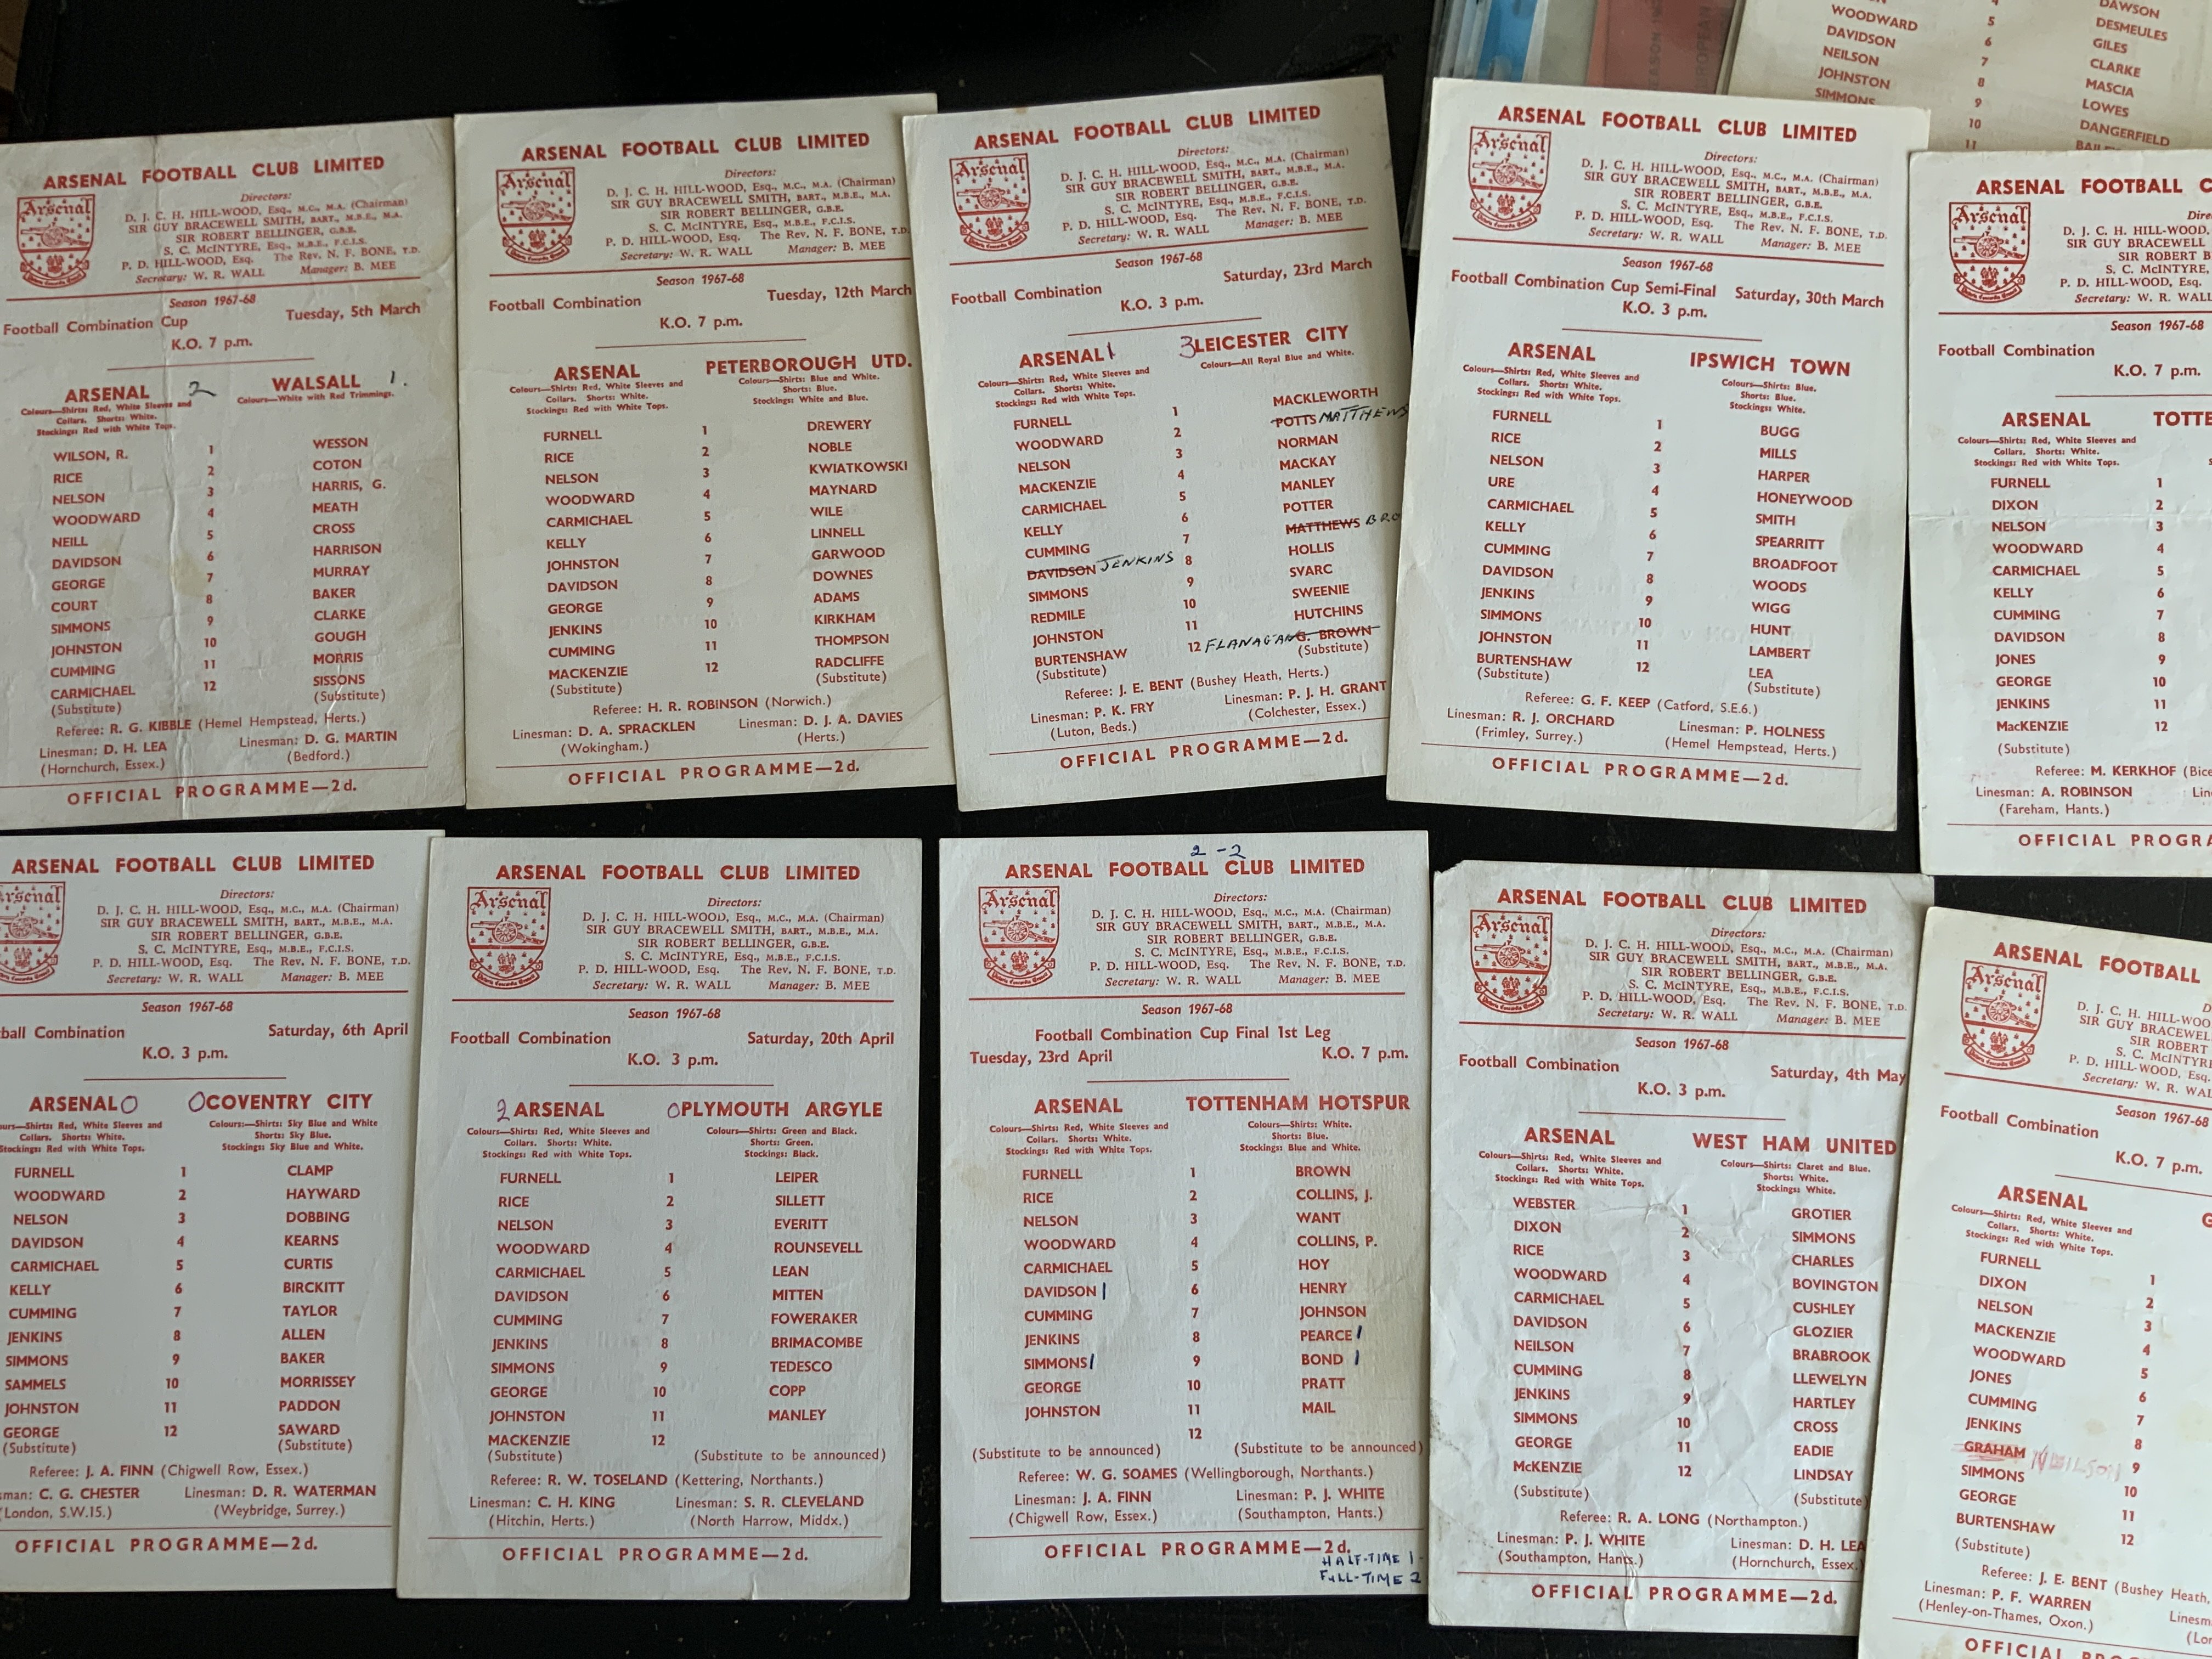 WOODWARD 5 DAWSON
DAVIDSON 6 DESMEULES
NEILSON 7 GILES
JOHNSTON 8 CLARKE
SIMMONS 9 MASCIA
10 LOWES
11 DANGERFIELD
ARSENAL FOOTBALL CLUB LIMITED
Arsenal
Directors:
D. J. C. H. HILL-WOOD, Esq., M.C., M.A. (Chairman)
SIR GUY BRACEWELL SMITH, BART., M.B.E., M.A.
SIR ROBERT BELLINGER, G.B.E.
S. C. McINTYRE, Esq., M.B.E., F.C.I.S.
P. D. HILL-WOOD, Esq. The Rev. N. F. BONE, T.D.
Secretary: W. R. WALL Manager: B. MEE
Season 1967-68
Football Combination Cup Tuesday, 5th March
K.O. 7 p.m.
ARSENAL 2 WALSALL 1.
Colours—Shirts: Red, White Sleeves and Colours—White with Red Trimmings.
Collars. Shorts: White.
Stockings: Red with White Tops.
WILSON, R. 1 WESSON
RICE 2 COTON
NELSON 3 HARRIS, G.
WOODWARD 4 MEATH
NEILL 5 CROSS
DAVIDSON 6 HARRISON
GEORGE 7 MURRAY
COURT 8 BAKER
SIMMONS 9 CLARKE
JOHNSTON 10 GOUGH
CUMMING 11 MORRIS
CARMICHAEL 12 SISSONS
(Substitute) (Substitute)
Referee: R. G. KIBBLE (Hemel Hempstead, Herts.)
Linesman: D. H. LEA Linesman: D. G. MARTIN
(Hornchurch, Essex.) (Bedford.)
OFFICIAL PROGRAMME—2d.
ARSENAL FOOTBALL CLUB LIMITED
Arsenal
Directors:
D. J. C. H. HILL-WOOD, Esq., M.C., M.A. (Chairman)
SIR GUY BRACEWELL SMITH, BART., M.B.E., M.A.
SIR ROBERT BELLINGER, G.B.E.
S. C. McINTYRE, Esq., M.B.E., F.C.I.S.
P. D. HILL-WOOD, Esq. The Rev. N. F. BONE, T.D.
Secretary: W. R. WALL Manager: B. MEE
Season 1967-68
Football Combination Tuesday, 12th March
K.O. 7 p.m.
ARSENAL PETERBOROUGH UTD.
Colours—Shirts: Red, White Sleeves and Colours—Shirts: Blue and White.
Collars. Shorts: White. Shorts: Blue.
Stockings: Red with White Tops. Stockings: White and Blue.
FURNELL 1 DREWERY
RICE 2 NOBLE
NELSON 3 KWIATKOWSKI
WOODWARD 4 MAYNARD
CARMICHAEL 5 WILE
KELLY 6 LINNELL
JOHNSTON 7 GARWOOD
DAVIDSON 8 DOWNES
GEORGE 9 ADAMS
JENKINS 10 KIRKHAM
CUMMING 11 THOMPSON
MACKENZIE 12 RADCLIFFE
(Substitute) (Substitute)
Referee: H. R. ROBINSON (Norwich.)
Linesman: D. A. SPRACKLEN Linesman: D. J. A. DAVIES
(Wokingham.) (Herts.)
OFFICIAL PROGRAMME—2d.
ARSENAL FOOTBALL CLUB LIMITED
Arsenal
Directors:
D. J. C. H. HILL-WOOD, Esq., M.C., M.A. (Chairman)
SIR GUY BRACEWELL SMITH, BART., M.B.E., M.A.
SIR ROBERT BELLINGER, G.B.E.
S. C. McINTYRE, Esq., M.B.E., F.C.I.S.
P. D. HILL-WOOD, Esq. The Rev. N. F. BONE, T.D.
Secretary: W. R. WALL Manager: B. MEE
Season 1967-68
Football Combination Saturday, 23rd March
K.O. 3 p.m.
ARSENAL 1 3 LEICESTER CITY
Colours—Shirts: Red, White Sleeves and Colours—All Royal Blue and White.
Collars. Shorts: White.
Stockings: Red with White Tops.
FURNELL 1 MACKLEWORTH
WOODWARD 2 POTTS MATTHEWS
NELSON 3 NORMAN
MACKENZIE 4 MACKAY
CARMICHAEL 5 MANLEY
KELLY 6 POTTER
CUMMING 7 MATTHEWS BRO
DAVIDSON JENKINS 8 HOLLIS
SIMMONS 9 SVARC
REDMILE 10 SWEENIE
JOHNSTON 11 HUTCHINS
BURTENSHAW 12 FLANAGAN G. BROWN
(Substitute) (Substitute)
Referee: J. E. BENT (Bushey Heath, Herts.)
Linesman: P. K. FRY Linesman: P. J. H. GRANT
(Luton, Beds.) (Colchester, Essex.)
OFFICIAL PROGRAMME—2d.
ARSENAL FOOTBALL CLUB LIMITED
Arsenal
Directors:
D. J. C. H. HILL-WOOD, Esq., M.C., M.A. (Chairman)
SIR GUY BRACEWELL SMITH, BART., M.B.E., M.A.
SIR ROBERT BELLINGER, G.B.E.
S. C. McINTYRE, Esq., M.B.E., F.C.I.S.
P. D. HILL-WOOD, Esq. The Rev. N. F. BONE, T.D.
Secretary: W. R. WALL Manager: B. MEE
Season 1967-68
Football Combination Cup Semi-Final Saturday, 30th March
K.O. 3 p.m.
ARSENAL IPSWICH TOWN
Colours—Shirts: Red, White Sleeves and Colours—Shirts: Blue.
Collars. Shorts: White. Shorts: Blue.
Stockings: Red with White Tops. Stockings: White.
FURNELL 1 BUGG
RICE 2 MILLS
NELSON 3 HARPER
URE 4 HONEYWOOD
CARMICHAEL 5 SMITH
KELLY 6 SPEARRITT
CUMMING 7 BROADFOOT
DAVIDSON 8 WOODS
JENKINS 9 WIGG
SIMMONS 10 HUNT
JOHNSTON 11 LAMBERT
BURTENSHAW 12 LEA
(Substitute) (Substitute)
Referee: G. F. KEEP (Catford, S.E.6.)
Linesman: R. J. ORCHARD Linesman: P. HOLNESS
(Frimley, Surrey.) (Hemel Hempstead, Herts.)
OFFICIAL PROGRAMME—2d.
ARSENAL FOOTBALL C
Arsenal
D. J. C. H. HILL-WOOD,
SIR GUY BRACEWELL
SIR ROBERT B
S. C. McINTYRE,
P. D. HILL-WOOD, Esq.
Secretary: W. R. WALL
Season 1967-68
Football Combination
K.O. 7 p.m.
ARSENAL TOTTE
Colours—Shirts: Red, White Sleeves and
Collars. Shorts: White.
Stockings: Red with White Tops.
FURNELL 1
DIXON 2
NELSON 3
WOODWARD 4
CARMICHAEL 5
KELLY 6
CUMMING 7
DAVIDSON 8
JONES 9
GEORGE 10
JENKINS 11
MacKENZIE 12
(Substitute)
Referee: M. KERKHOF (Bice
Linesman: A. ROBINSON Lin
(Fareham, Hants.)
OFFICIAL PROGRA
ARSENAL FOOTBALL CLUB LIMITED
Arsenal
Directors:
D. J. C. H. HILL-WOOD, Esq., M.C., M.A. (Chairman)
SIR GUY BRACEWELL SMITH, BART., M.B.E., M.A.
SIR ROBERT BELLINGER, G.B.E.
S. C. McINTYRE, Esq., M.B.E., F.C.I.S.
P. D. HILL-WOOD, Esq. The Rev. N. F. BONE, T.D.
Secretary: W. R. WALL Manager: B. MEE
Season 1967-68
ball Combination Saturday, 6th April
K.O. 3 p.m.
ARSENAL 0 0 COVENTRY CITY
ours—Shirts: Red, White Sleeves and Colours:—Shirts: Sky Blue and White
Collars. Shorts: White. Shorts: Sky Blue.
Stockings: Red with White Tops. Stockings: Sky Blue and White.
FURNELL 1 CLAMP
WOODWARD 2 HAYWARD
NELSON 3 DOBBING
DAVIDSON 4 KEARNS
CARMICHAEL 5 CURTIS
KELLY 6 BIRCKITT
CUMMING 7 TAYLOR
JENKINS 8 ALLEN
SIMMONS 9 BAKER
SAMMELS 10 MORRISSEY
JOHNSTON 11 PADDON
GEORGE 12 SAWARD
(Substitute) (Substitute)
Referee: J. A. FINN (Chigwell Row, Essex.)
sman: C. G. CHESTER Linesman: D. R. WATERMAN
(London, S.W.15.) (Weybridge, Surrey.)
OFFICIAL PROGRAMME—2d.
ARSENAL FOOTBALL CLUB LIMITED
Arsenal
Directors:
D. J. C. H. HILL-WOOD, Esq., M.C., M.A. (Chairman)
SIR GUY BRACEWELL SMITH, BART., M.B.E., M.A.
SIR ROBERT BELLINGER, G.B.E.
S. C. McINTYRE, Esq., M.B.E., F.C.I.S.
P. D. HILL-WOOD, Esq. The Rev. N. F. BONE, T.D.
Secretary: W. R. WALL Manager: B. MEE
Season 1967-68
Football Combination Saturday, 20th April
K.O. 3 p.m.
2 ARSENAL 0 PLYMOUTH ARGYLE
Colours—Shirts: Red, White Sleeves and Colours—Shirts: Green and Black.
Collars. Shorts: White. Shorts: Green.
Stockings: Red with White Tops. Stockings: Black.
FURNELL 1 LEIPER
RICE 2 SILLETT
NELSON 3 EVERITT
WOODWARD 4 ROUNSEVELL
CARMICHAEL 5 LEAN
DAVIDSON 6 MITTEN
CUMMING 7 FOWERAKER
JENKINS 8 BRIMACOMBE
SIMMONS 9 TEDESCO
GEORGE 10 COPP
JOHNSTON 11 MANLEY
MACKENZIE 12
(Substitute) (Substitute to be announced)
Referee: R. W. TOSELAND (Kettering, Northants.)
Linesman: C. H. KING Linesman: S. R. CLEVELAND
(Hitchin, Herts.) (North Harrow, Middx.)
OFFICIAL PROGRAMME—2d.
2 - 2
ARSENAL FOOTBALL CLUB LIMITED
Arsenal
Directors:
D. J. C. H. HILL-WOOD, Esq., M.C., M.A. (Chairman)
SIR GUY BRACEWELL SMITH, BART., M.B.E., M.A.
SIR ROBERT BELLINGER, G.B.E.
S. C. McINTYRE, Esq., M.B.E., F.C.I.S.
P. D. HILL-WOOD, Esq. The Rev. N. F. BONE, T.D.
Secretary: W. R. WALL Manager: B. MEE
Season 1967-68
Football Combination Cup Final 1st Leg
Tuesday, 23rd April K.O. 7 p.m.
ARSENAL TOTTENHAM HOTSPUR
Colours—Shirts: Red, White Sleeves and Colours—Shirts: White.
Collars. Shorts: White. Shorts: Blue.
Stockings: Red with White Tops. Stockings: Blue and White.
FURNELL 1 BROWN
RICE 2 COLLINS, J.
NELSON 3 WANT
WOODWARD 4 COLLINS, P.
CARMICHAEL 5 HOY
DAVIDSON 1 6 HENRY
CUMMING 7 JOHNSON
JENKINS 8 PEARCE 1
SIMMONS 1 9 BOND 1
GEORGE 10 PRATT
JOHNSTON 11 MAIL
12
(Substitute to be announced) (Substitute to be announced)
Referee: W. G. SOAMES (Wellingborough, Northants.)
Linesman: J. A. FINN Linesman: P. J. WHITE
(Chigwell Row, Essex.) (Southampton, Hants.)
OFFICIAL PROGRAMME—2d.
HALF-TIME 1-
FULL-TIME 2
ARSENAL FOOTBALL CLUB LIMITED
Arsenal
Directors:
D. J. C. H. HILL-WOOD, Esq., M.C., M.A. (Chairman)
SIR GUY BRACEWELL SMITH, BART., M.B.E., M.A.
SIR ROBERT BELLINGER, G.B.E.
S. C. McINTYRE, Esq., M.B.E., F.C.I.S.
P. D. HILL-WOOD, Esq. The Rev. N. F. BONE, T.D.
Secretary: W. R. WALL Manager: B. MEE
Season 1967-68
Football Combination Saturday, 4th May
K.O. 3 p.m.
ARSENAL WEST HAM UNITED
Colours—Shirts: Red, White Sleeves and Colours—Shirts: Claret and Blue.
Collars. Shorts: White. Shorts: White.
Stockings: Red with White Tops. Stockings: White.
WEBSTER 1 GROTIER
DIXON 2 SIMMONS
RICE 3 CHARLES
WOODWARD 4 BOVINGTON
CARMICHAEL 5 CUSHLEY
DAVIDSON 6 GLOZIER
NEILSON 7 BRABROOK
CUMMING 8 LLEWELYN
JENKINS 9 HARTLEY
SIMMONS 10 CROSS
GEORGE 11 EADIE
McKENZIE 12 LINDSAY
(Substitute) (Substitute)
Referee: R. A. LONG (Northampton.)
Linesman: P. J. WHITE Linesman: D. H. LEA
(Southampton, Hants.) (Hornchurch, Essex.
OFFICIAL PROGRAMME—2d.
ARSENAL FOOTBALL
Arsenal
D. J. C. H. HILL-WOO
SIR GUY BRACEWEL
SIR ROBERT
S. C. McINTYR
P. D. HILL-WOOD, Esq.
Secretary: W. R. WAL
Season 1967-68
Football Combination
K.O. 7 p.m.
ARSENAL
Colours—Shirts: Red, White Sleeves and
Collars. Shorts: White.
Stockings: Red with White Tops.
FURNELL 1
DIXON 2
NELSON 3
MACKENZIE 4
WOODWARD 5
JONES 6
CUMMING 7
JENKINS 8
GRAHAM NEILSON 9
SIMMONS 10
GEORGE 11
BURTENSHAW 12
(Substitute)
Referee: J. E. BENT (Bushey Heath,
Linesman: P. F. WARREN Linesm
(Henley-on-Thames, Oxon.) (Lon
OFFICIAL PROG